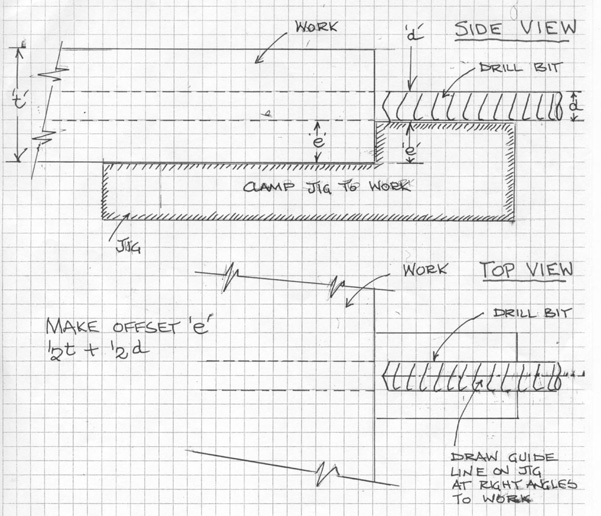 WORK
'd'
SIDE VIEW
DRILL BIT
't'
d
'e'
'e'
CLAMP JIG TO WORK
JIG
WORK
TOP VIEW
MAKE OFFSET 'e'
½t + ½d
DRILL BIT
DRAW GUIDE
LINE ON JIG
AT RIGHT ANGLES
TO WORK